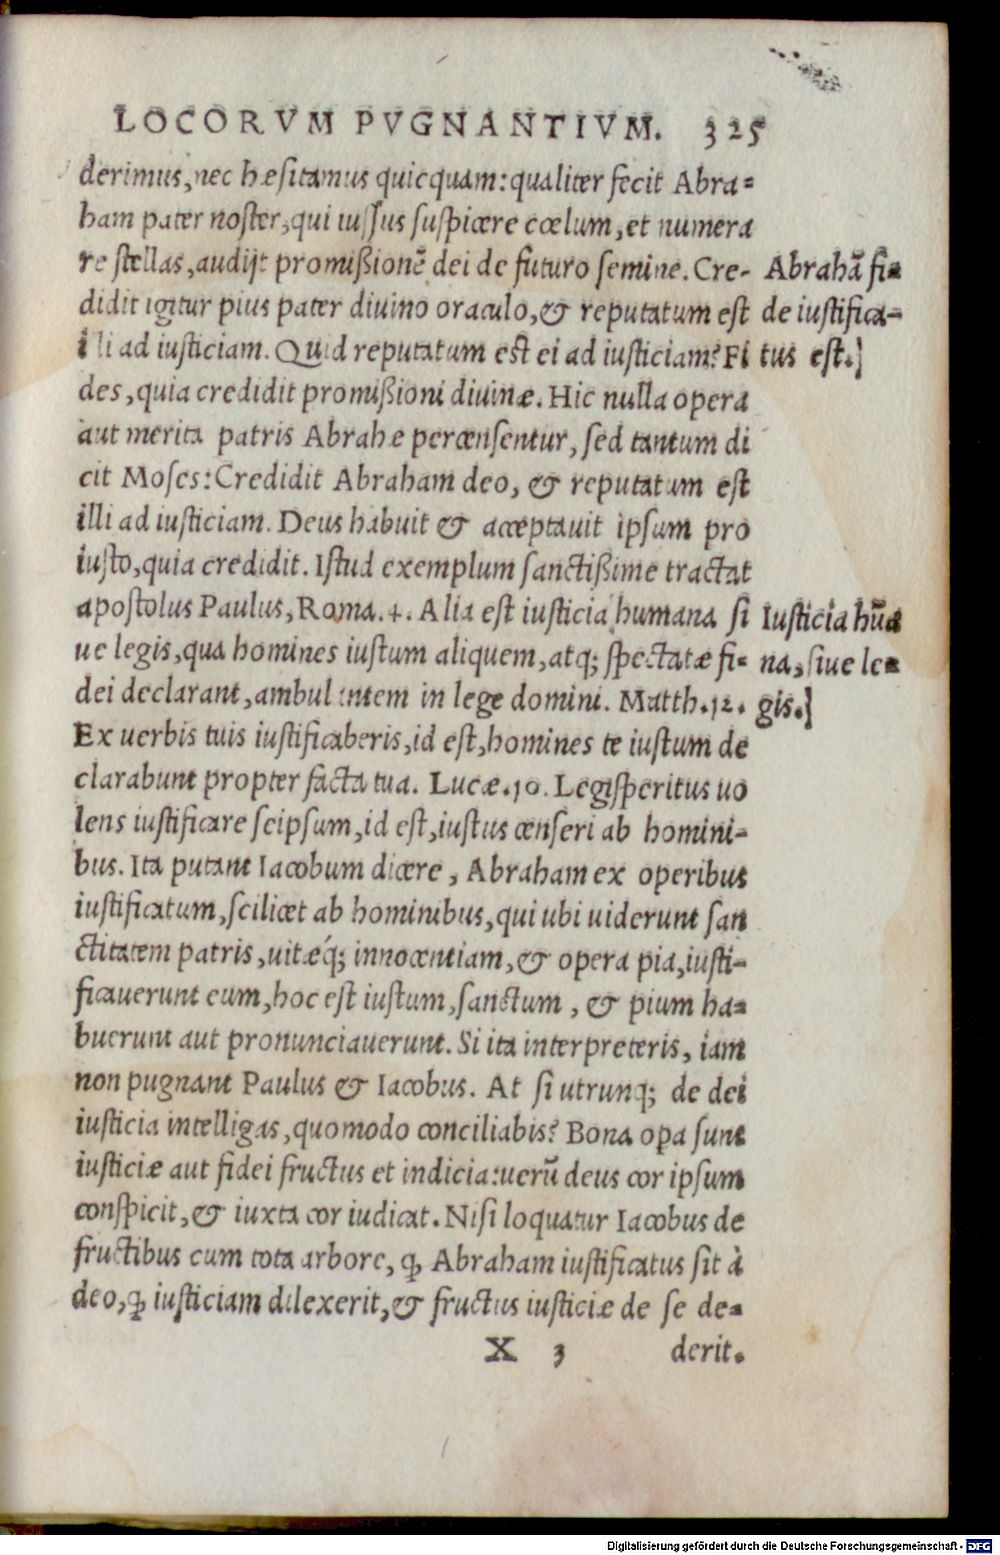 LOCORVM PVGNANTIVM. 325
derimus, nec hæsitamus quicquam: qualiter fecit Abra-
ham pater noster, qui iussus suspicere cœlum, et numera
re stellas, audijt promißionē dei de futuro semine. Cre-
didit igitur pius pater diuino oraculo, & reputatum est
illi ad iusticiam. Quid reputatum est ei ad iusticiam? Fi
des, quia credidit promißioni diuinæ. Hic nulla opera
aut merita patris Abrahe percensentur, sed tantum di
cit Moses: Credidit Abraham deo, & reputatum est
illi ad iusticiam. Deus habuit & acceptauit ipsum pro
iusto, quia credidit. Istud exemplum sanctißime tractat
apostolus Paulus, Roma. 4. Alia est iusticia humana si
ue legis, qua homines iustum aliquem, atq; spectatæ fi-
dei declarant, ambulantem in lege domini. Matth. 12.
Ex uerbis tuis iustificaberis, id est, homines te iustum de
clarabunt propter facta tua. Lucæ. 10. Legisperitus uo
lens iustificare seipsum, id est, iustus censeri ab homini-
bus. Ita putant Iacobum dicere, Abraham ex operibus
iustificatum, scilicet ab hominibus, qui ubi uiderunt san
ctitatem patris, uitæq́; innocentiam, & opera pia, iusti-
ficauerunt eum, hoc est iustum, sanctum, & pium ha-
buerunt aut pronunciauerunt. Si ita interpreteris, iam
non pugnant Paulus & Iacobus. At si utrunq; de dei
iusticia intelligas, quomodo conciliabis? Bona oꝑa sunt
iusticiæ aut fidei fructus et indicia: uerū deus cor ipsum
conspicit, & iuxta cor iudicat. Nisi loquatur Iacobus de
fructibus cum tota arbore, ꝙ Abraham iustificatus sit à
deo, ꝙ iusticiam dilexerit, & fructus iusticiæ de se de-
X 3 derit.
Abrahā fi-
de iustifica-
tus est.]
Iusticia hūa
na, siue le-
gis.]
Digitalisierung gefördert durch die Deutsche Forschungsgemeinschaft - DFG